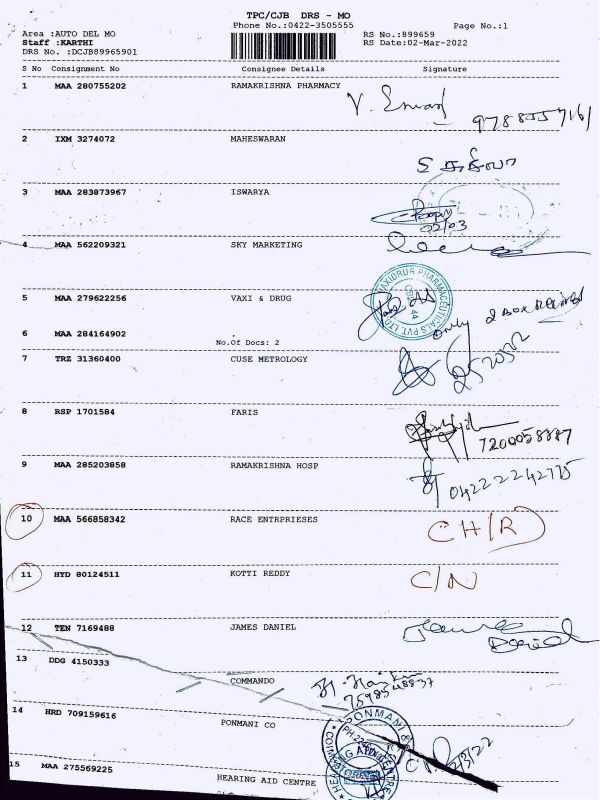 TPC/CJB DRS - MO
Phone No.:0422-3505555
Page No.:1
Area :AUTO DEL MO
RS No.:899659
Staff :KARTHI
RS Date:02-Mar-2022
DRS No. :DCJB89965901
S No Consignment No Consignee Details Signature
1 MAA 280755202 RAMAKRISHNA PHARMACY
2 IXM 3274072 MAHESWARAN
3 MAA 283873967 ISWARYA
02/03
4 MAA 562209321 SKY MARKETING
5 MAA 279622256 VAXI & DRUG
only 2 Box Received
6 MAA 284164902
No.Of Docs: 2
7 TRZ 31360400 CUSE METROLOGY
8 RSP 1701584 FARIS
7200058887
9 MAA 285203858 RAMAKRISHNA HOSP
10 MAA 566858342 RACE ENTRPRIESES CH/R
11 HYD 80124511 KOTTI REDDY C/N
12 TEN 7169488 JAMES DANIEL James Daniel
13 DDG 4150333 COMMANDO
7598548837
14 HRD 709159616 PONMANI CO
15 MAA 275569225 HEARING AID CENTRE